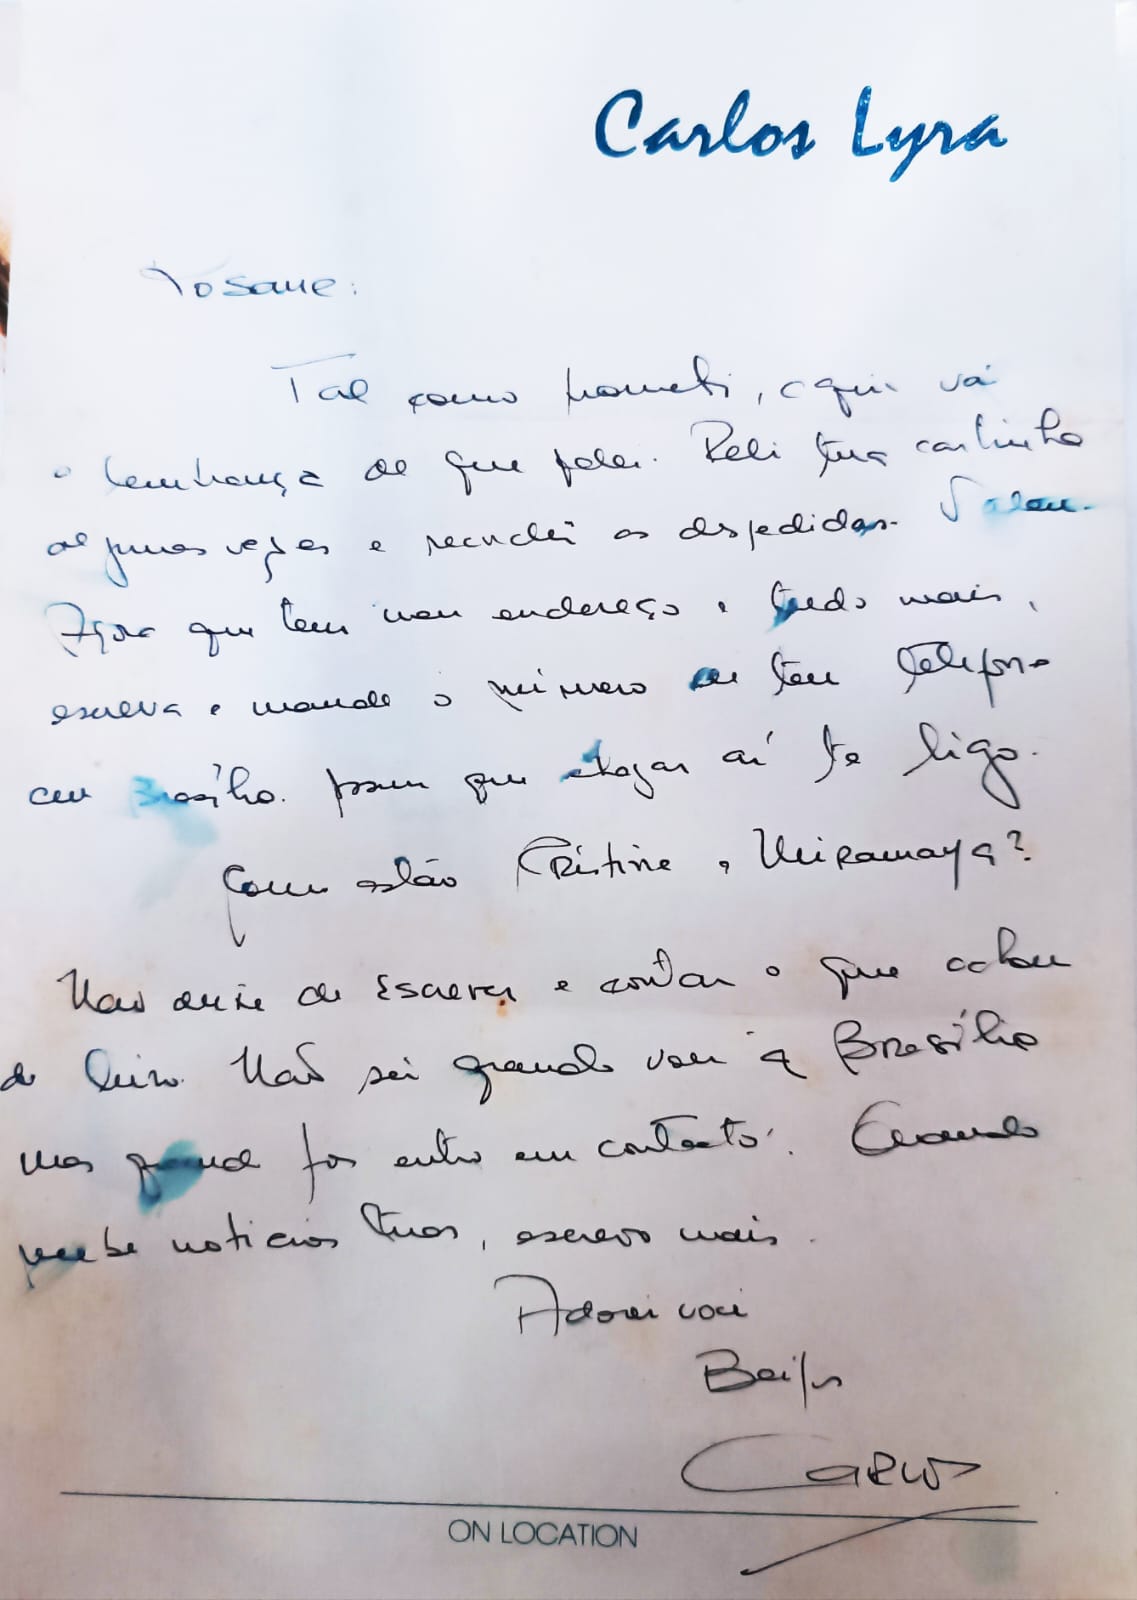 Carlos Lyra
Rosane:
Tal como prometi, aqui vá
a lembrança de que falei. Reli tua cartinha
algumas vezes e recordei as despedidas.
Agora que tem meu endereço e tudo mais,
escreva e mande o número de teu telefone
em Brasília. que chegar aí te ligo.
Como estão Cristine e Uiramaya?
Não deixe de escrever e contar o que achou
do livro. Não sei quando vou a Brasília
mas quando for entro em contacto. Quando
receber noticias tuas, escrevo mais.
Adorei você
Beijos
Carlos
ON LOCATION